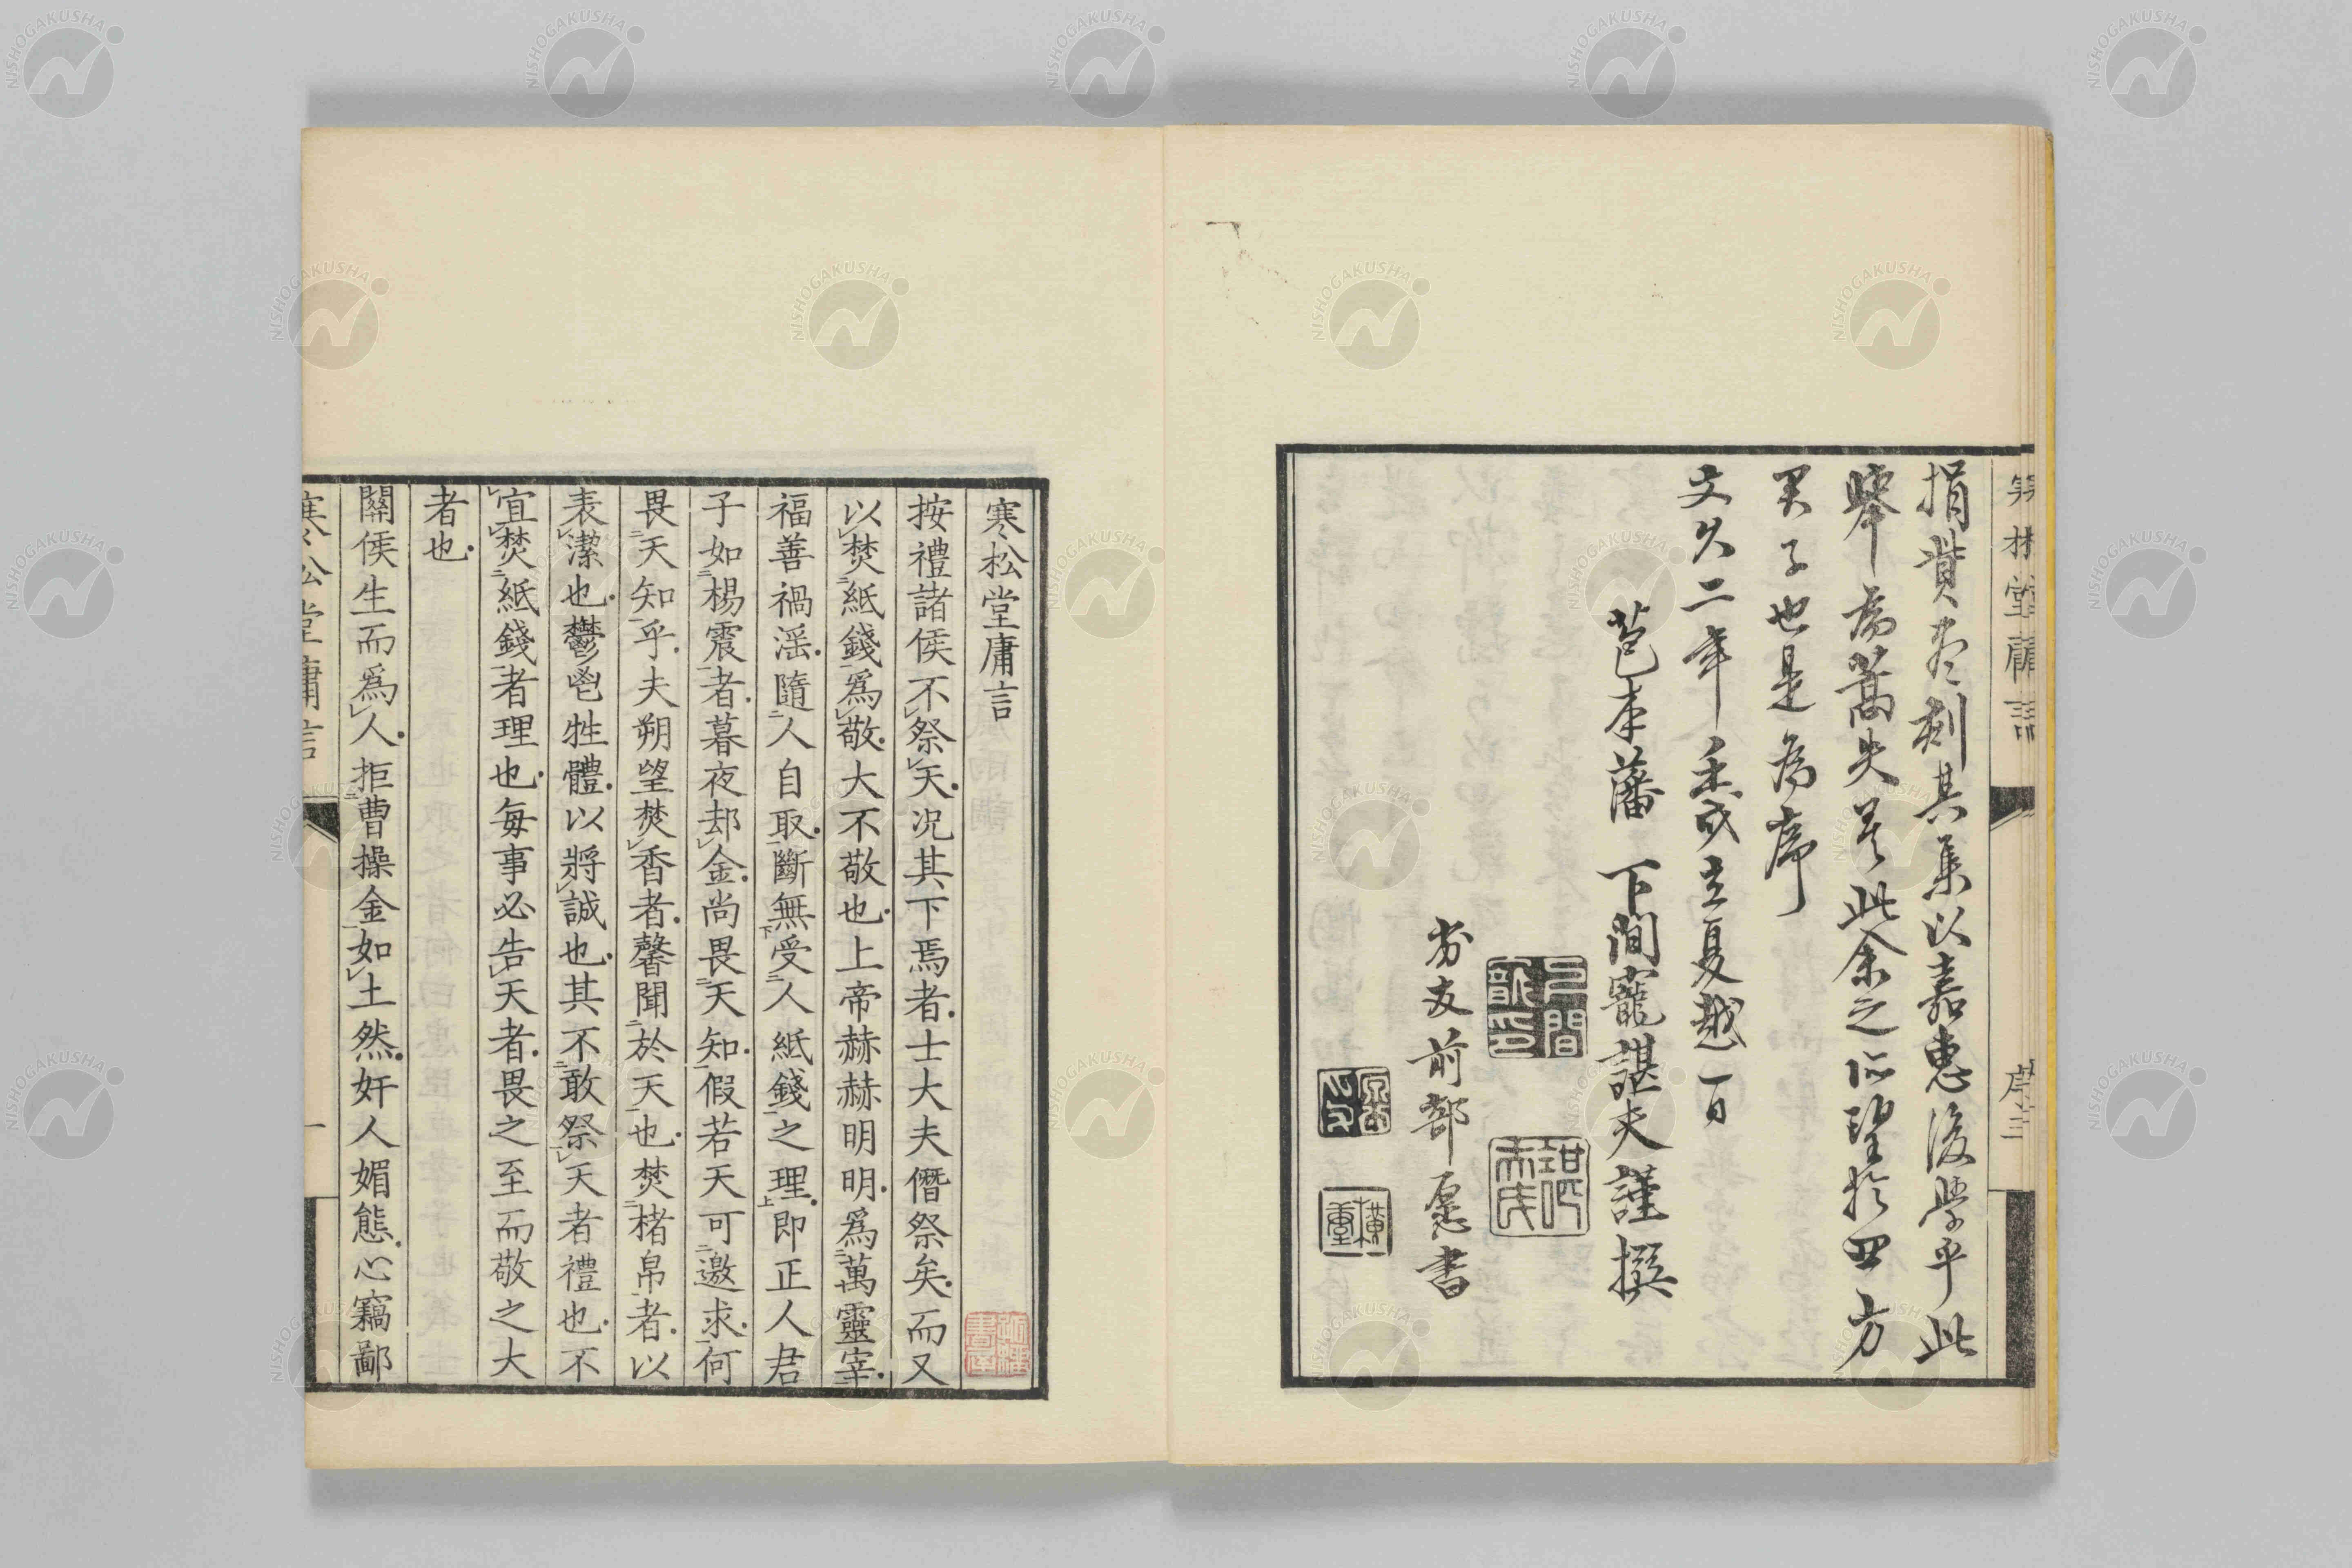 捐貲夀刻其集以嘉惠後學乎此
舉為蒿矢若此余之所望於四方
君子也是為序
文久二年壬戌立夏越一日
苞本藩 下間寵諶夫謹撰
前部愿書
寒松堂庸言
按禮諸侯不祭天況其下焉者士大夫僭祭矣而又
以焚紙錢爲敬大不敬也上帝赫赫明明爲萬靈宰
福善禍淫隨人自取斷無受人紙錢之理即正人君
子如楊震者暮夜却金尚畏天知假若天可邀求何
畏天知乎夫朔望焚香者馨聞於天也焚楮帛者以
表潔也鬱鬯牲體以將誠也其不敢祭天者禮也不
宜焚紙錢者理也每事必告天者畏之至而敬之大
者也
關侯生而爲人拒曹操金如土然奸人媚態心竊鄙
寒松堂庸言
一
NISHOGAKUSHA